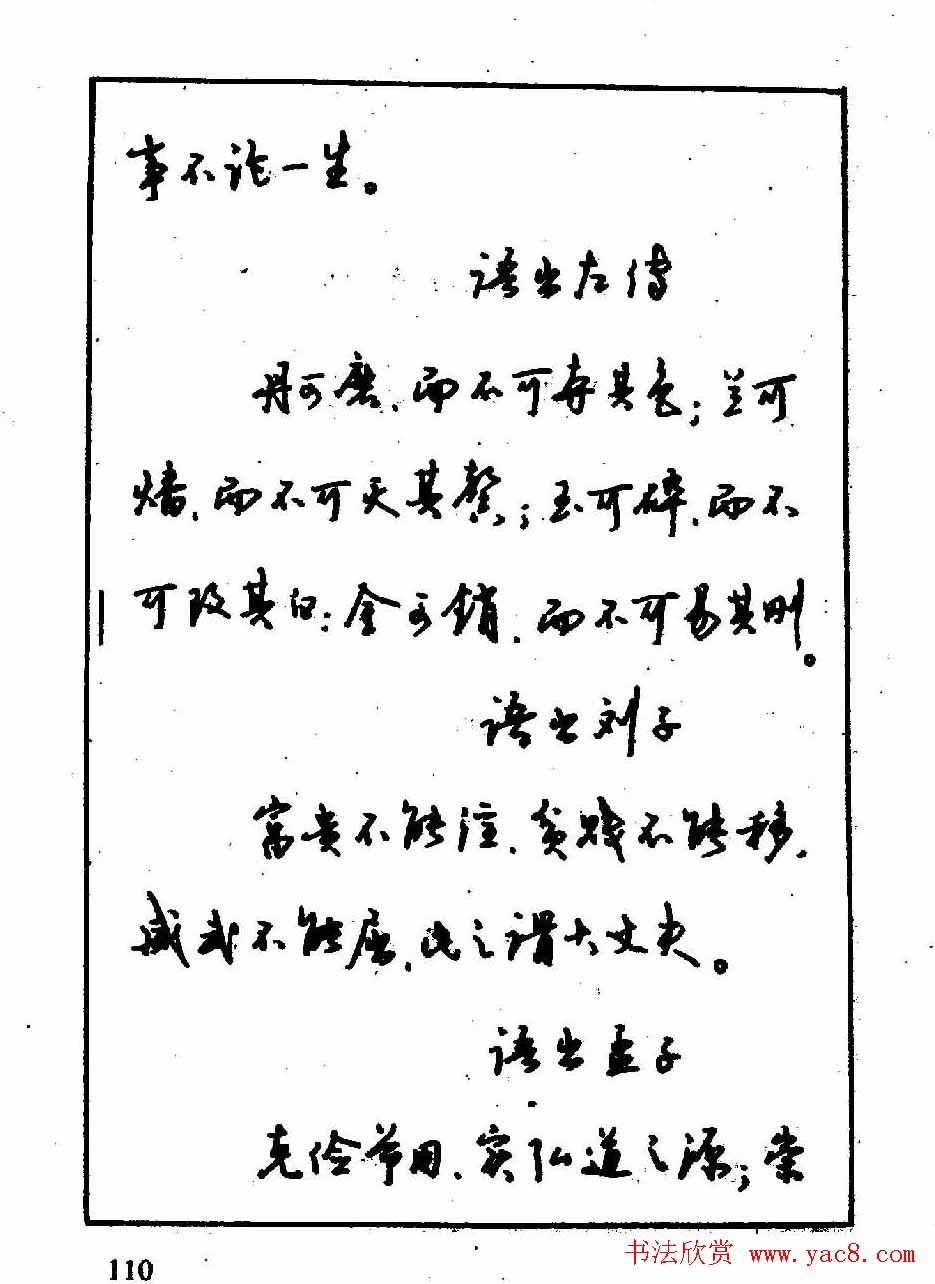 事不论一生。
语出左传
丹可磨，而不可夺其色；兰可
燔，而不可灭其馨；玉可碎，而不
可改其白；金可销，而不可易其刚。
语出刘子
富贵不能淫，贫贱不能移，
威武不能屈，此之谓大丈夫。
语出孟子
克俭节用，实弘道之源；崇
110
书法欣赏 www.yac8.com